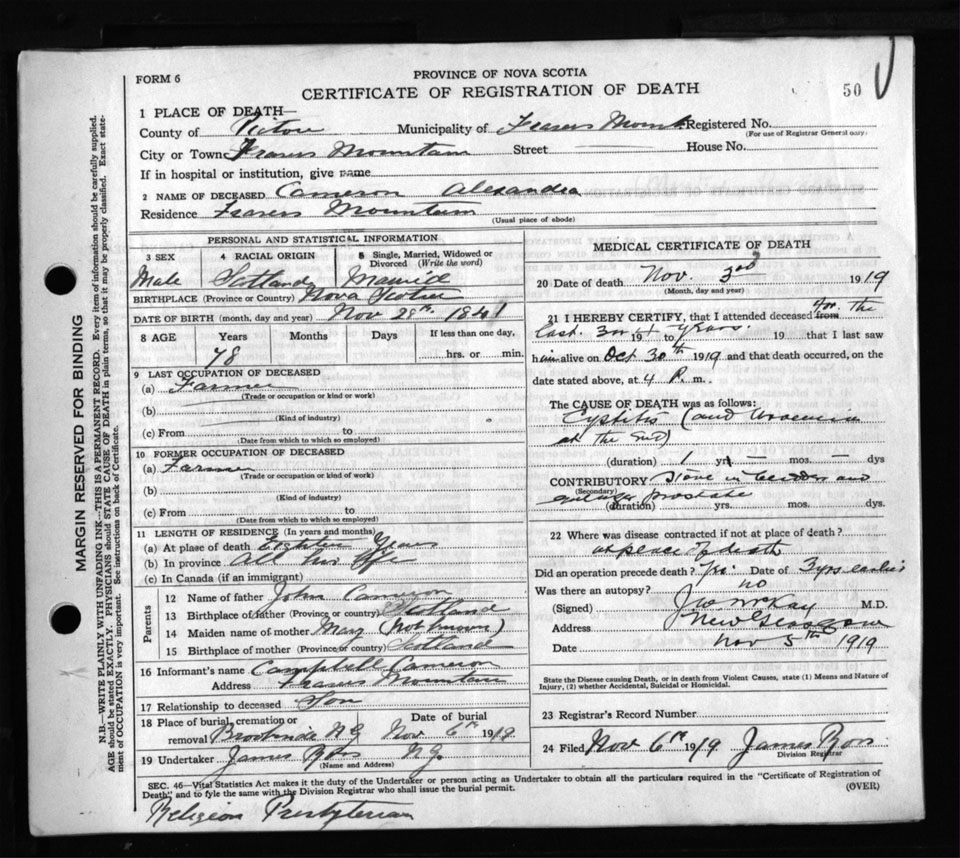 FORM 6
PROVINCE OF NOVA SCOTIA
CERTIFICATE OF REGISTRATION OF DEATH
50
1 PLACE OF DEATH—
County of Pictou Municipality of Frasers Mount. Registered No.
(For use of Registrar General only)
City or Town Frasers Mountain Street House No.
If in hospital or institution, give name
2 NAME OF DECEASED Cameron Alexandra
Residence Frasers Mountain
(Usual place of abode)
PERSONAL AND STATISTICAL INFORMATION
3 SEX 4 RACIAL ORIGIN 5 Single, Married, Widowed or Divorced (Write the word)
Male Scotland Married
BIRTHPLACE (Province or Country) Nova Scotia
DATE OF BIRTH (month, day and year) Nov 28th. 1841
8 AGE Years Months Days If less than one day,
78 hrs. or min.
9 LAST OCCUPATION OF DECEASED
(a) Farmer
(Trade or occupation or kind of work)
(b)
(Kind of industry)
(c) From to
(Date from which to which so employed)
10 FORMER OCCUPATION OF DECEASED
(a) Farmer
(Trade or occupation or kind of work)
(b)
(Kind of industry)
(c) From to
(Date from which to which so employed)
11 LENGTH OF RESIDENCE (In years and months)
(a) At place of death Eighteen Years
(b) In province All his life
(c) In Canada (if an immigrant)
Parents
12 Name of father John Cameron
13 Birthplace of father (Province or country) Scotland
14 Maiden name of mother Mary (Not known)
15 Birthplace of mother (Province or country) Scotland
16 Informant's name Campbell Cameron
Address Frasers Mountain
17 Relationship to deceased Son
18 Place of burial, cremation or removal Brookside N.G. Date of burial Nov 6th 1919
19 Undertaker James Ross N.G.
(Name and Address)
MEDICAL CERTIFICATE OF DEATH
20 Date of death Nov. 3rd 1919
(Month, day and year)
21 I HEREBY CERTIFY, that I attended deceased from for the
last 3 or 4 years. 19 to 19 that I last saw
him alive on Oct 30th 1919 and that death occurred, on the
date stated above, at 4 P. m.
The CAUSE OF DEATH was as follows:
Cystitis (and Uraemia
at the End)
(duration) 1 yrs — mos. — dys
CONTRIBUTORY Stone in bladder and
(Secondary)
enlarged prostate
(duration) yrs. mos. dys.
22 Where was disease contracted if not at place of death?
at place of death
Did an operation precede death? Yes. Date of 3 yrs earlier
Was there an autopsy? no
(Signed) J W McKay M.D.
Address New Glasgow
Date Nov 5th 1919
State the Disease causing Death, or in death from Violent Causes, state (1) Means and Nature of
Injury, (2) whether Accidental, Suicidal or Homicidal.
23 Registrar's Record Number
24 Filed Nov 6th 1919 James Ross
Division Registrar
SEC. 46—Vital Statistics Act makes it the duty of the Undertaker or person acting as Undertaker to obtain all the particulars required in the "Certificate of Registration of
Death" and to fyle the same with the Division Registrar who shall issue the burial permit.
(OVER)
Religion Presbyterian
MARGIN RESERVED FOR BINDING
N.B.—WRITE PLAINLY WITH UNFADING INK—THIS IS A PERMANENT RECORD. Every item of information should be carefully supplied.
AGE should be stated EXACTLY. PHYSICIANS should STATE CAUSE OF DEATH in plain terms, so that it may be properly classified. Exact statement
of OCCUPATION is very important. See instructions on back of Certificate.